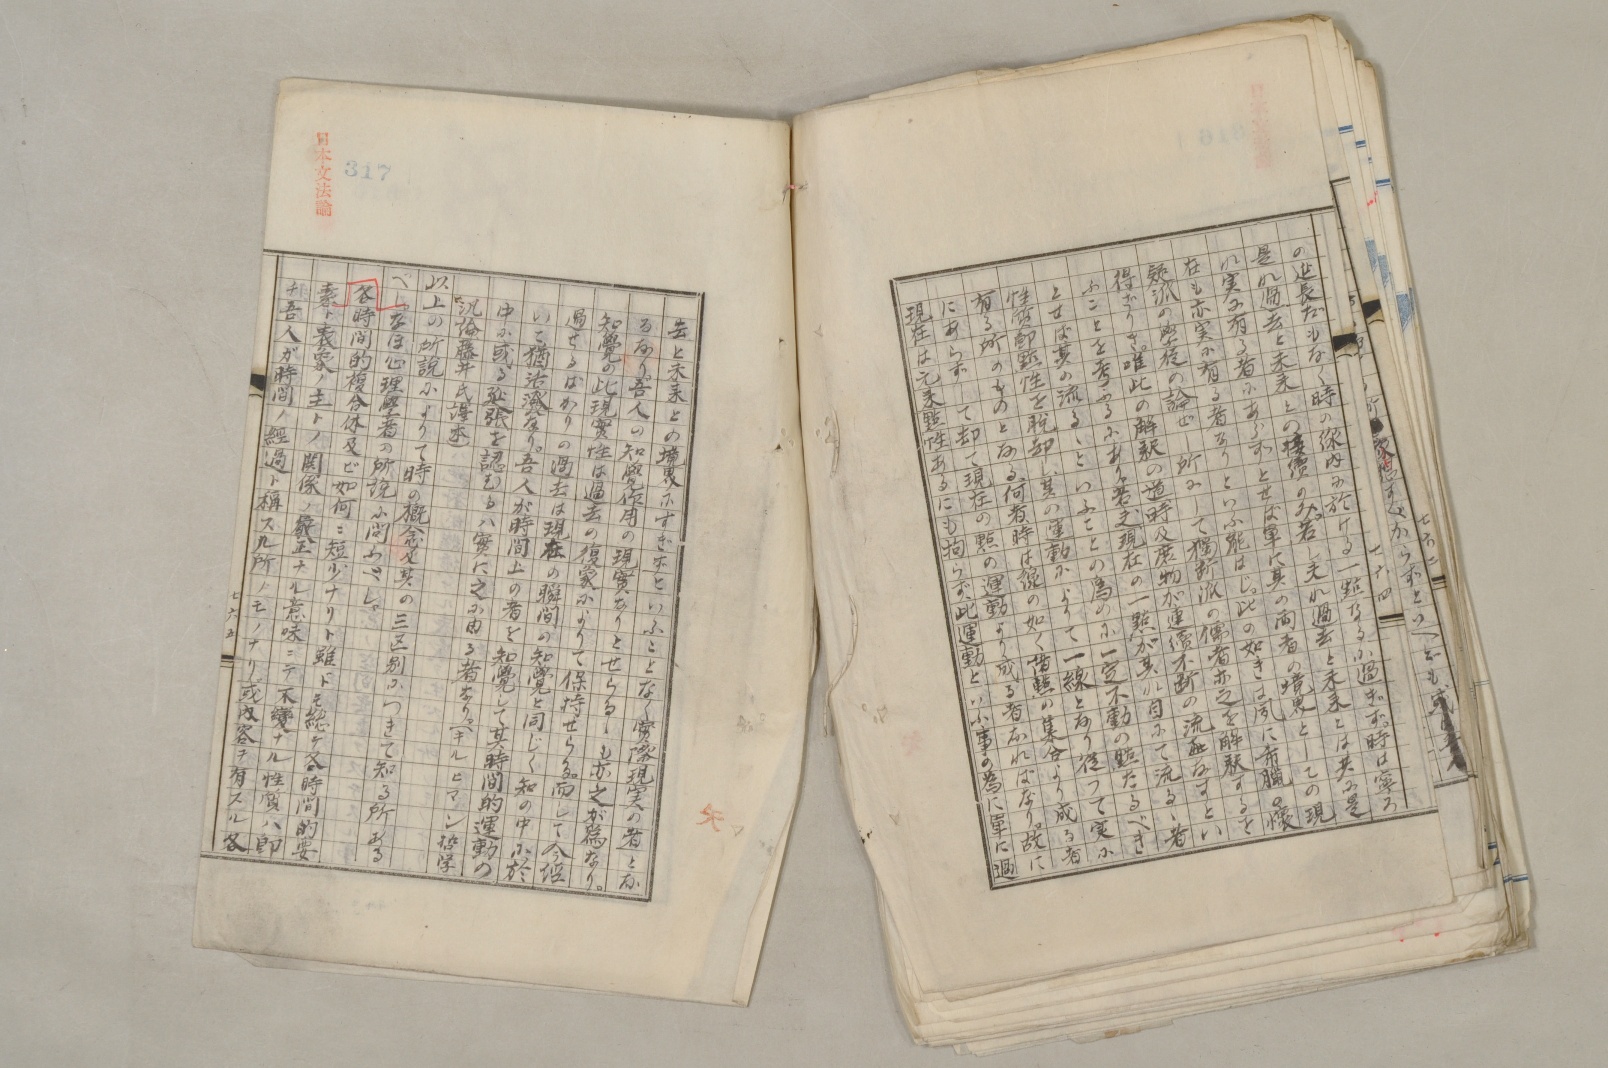 の延長だもなく時の線内に於ける一點なるに過ぎず。時は寧ろ
是れ過去と未来との接償のみ。若し夫れ過去と未来とは共に是
れ実に有る者にあらずとせば単に其の両者の境界としての現
在も亦実に有る者なりといふ能はじ。此の如きは夙に希臘の懐
疑派の学徒の論ぜし所にして独断派の儒者亦之を解釈するを
得ざりき。唯此の解釈の道、時及産物が連續不断の流動なすとい
ふことを考ふるにあり。若夫現在の一點が其れ自にて流るゝ者
とせば其の流るゝといふことの為めに一定不動の點たるべき
性質即點性を脱却し其の運動によりて一線となり従つて実に
有る所のものとなる。何者時は線の如く皆點の集合より成る者
にあらずして却て現在の點の運動より成る者なればなり。故に
現在は元来點性あるにも拘らず、此運動といふ事の為に單に過
七六四
日本文法論
317
去と未来との境界にすぎずといふことなく實際現実の者とな
るなり。吾人の知覺作用の現實なりとせらるゝも亦之が為なり。
知覺の此現實性は過去の復象によりて保持せらる。而して今経
過せるばかりの過去は現在の瞬間の知覺と同じく知の中に於
いて猶活溌なり。吾人が時間上の者を知覺して其時間的運動の
中に或る延張を認むるハ實に之に由る者なり。(キルヒマン哲学
汎論藤井氏譯述)
以上の所説によりて時の概念及其の三区別につきて知る所ある
べし。なほ心理學者の所説に問ふべし。
各時間的複合体及ビ如何ニ短少ナリト雖ドモ総ケ各時間的要
素ト表象ノ主トノ関係ノ嚴正ナル意味ニテ不變ナル性質ハ即
チ吾人が時間ノ經過ト稱スル所ノモノナリ。或内容ヲ有スル各
七六五